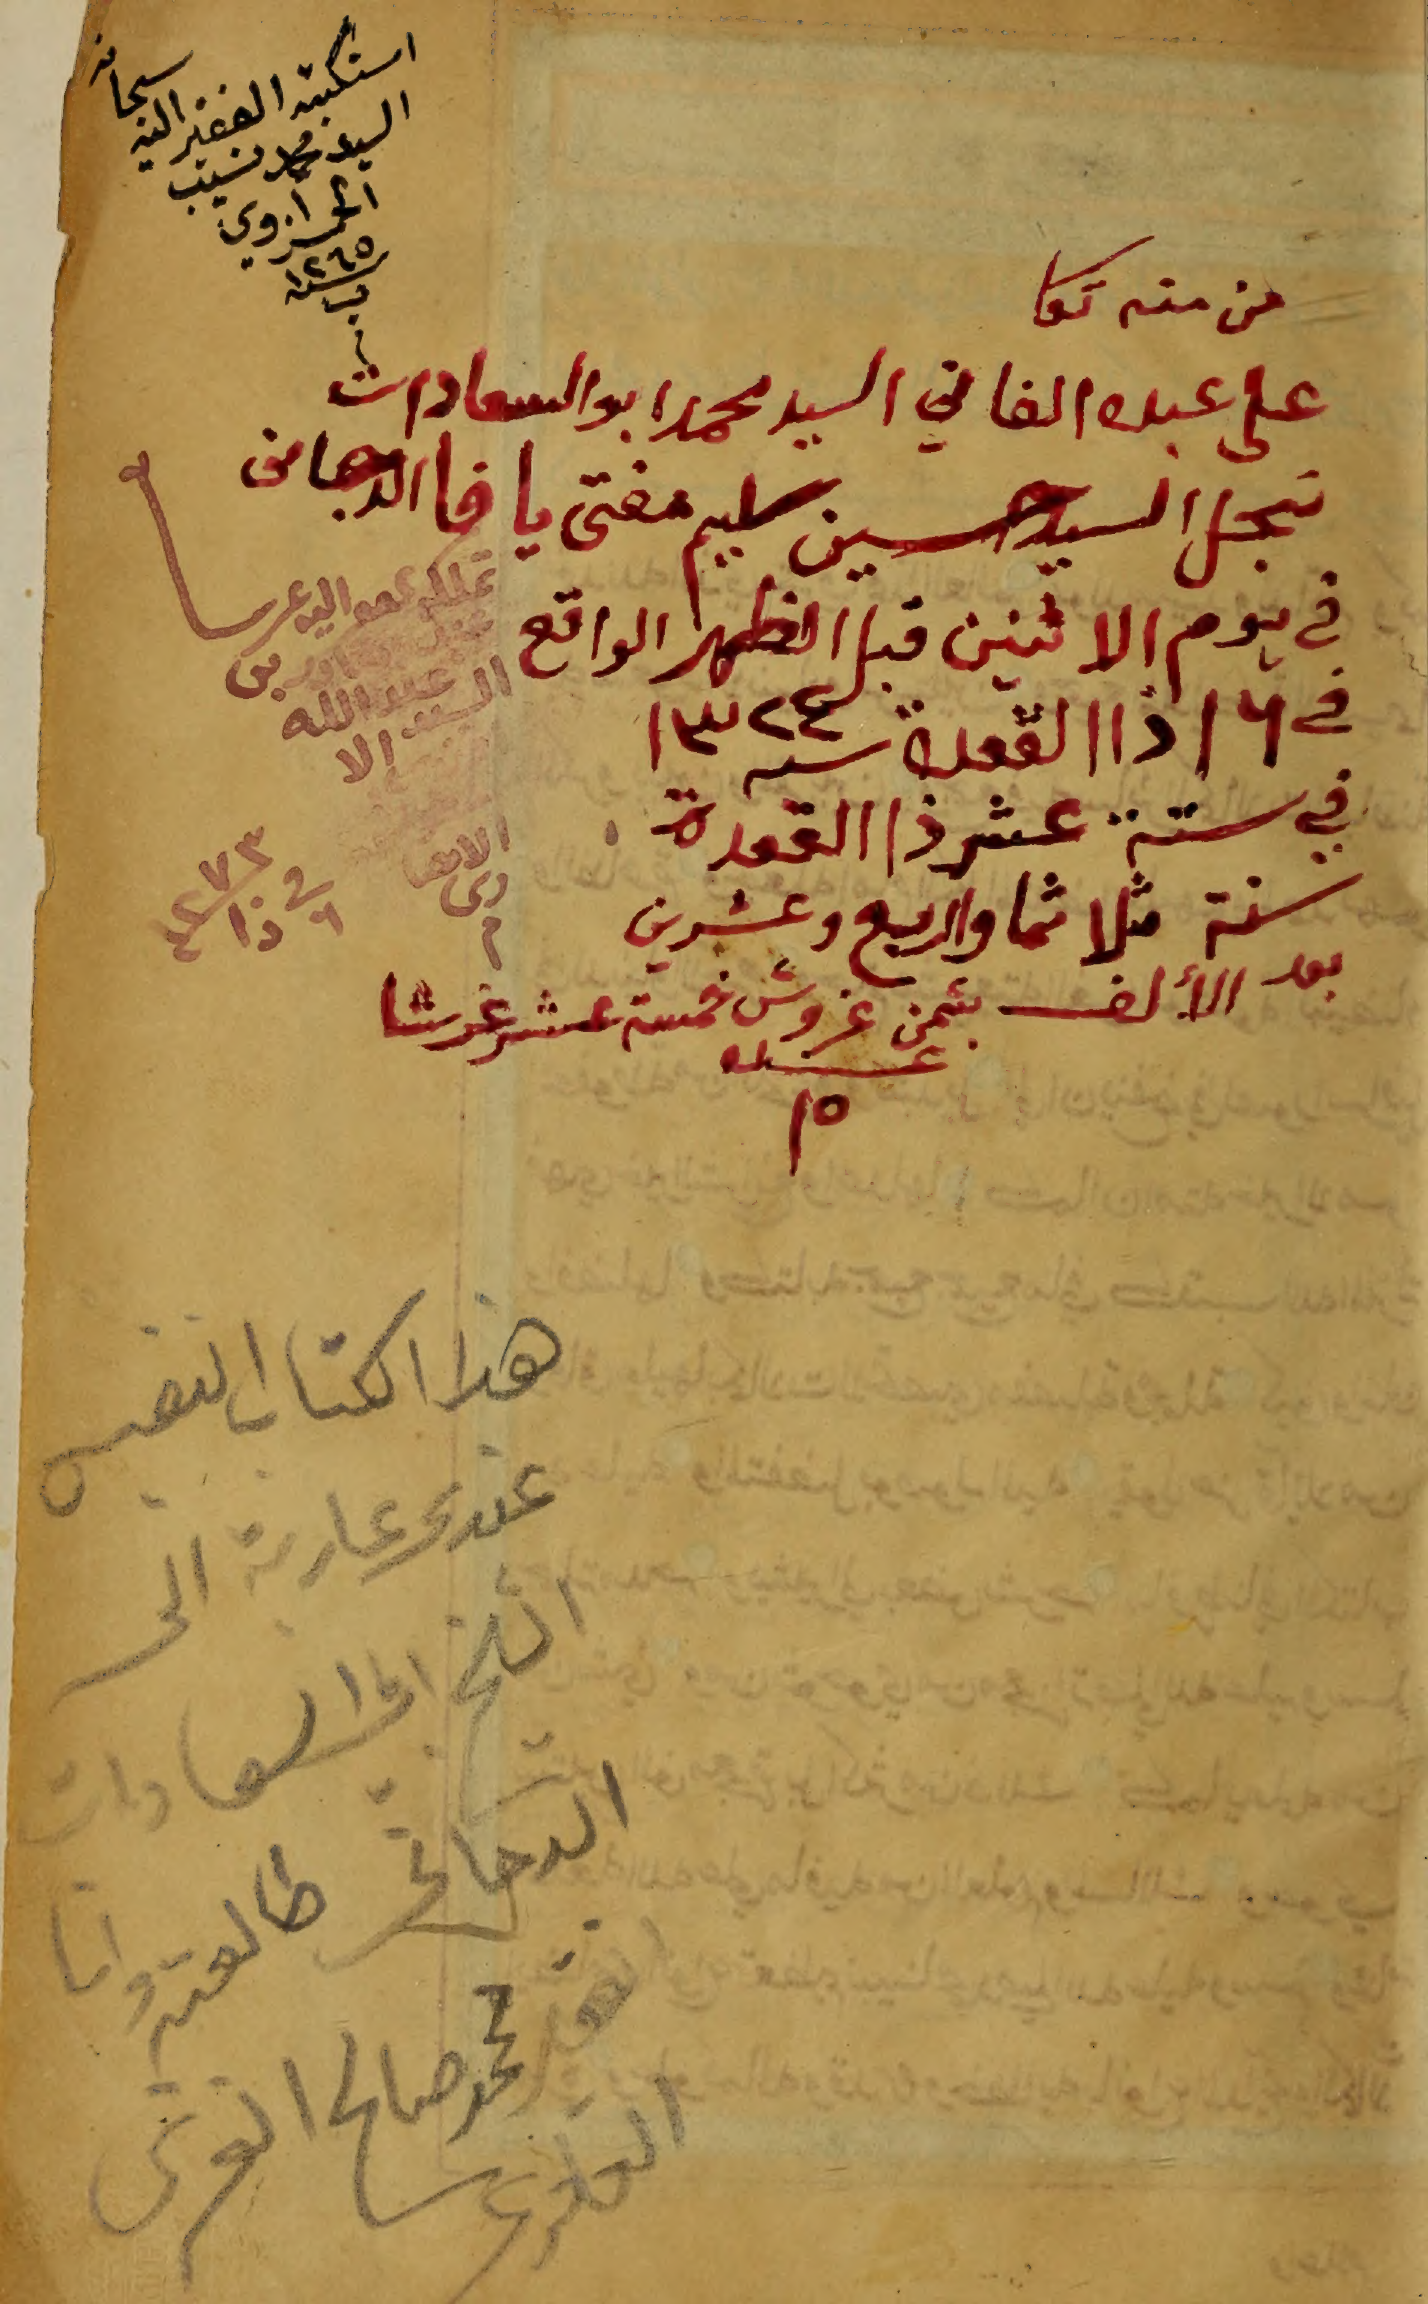 استكتبه الفقير اليه سبحانه
السيد محمد نسيب
الحمزاوي
سنة ١٢٦٥
من منه تعا
على عبده الفاني السيد محمد ابو السعادات
نجل السيد حسين سليم مفتي يافا الدجاني
في يوم الاثنين قبل الظهر الواقع
في ١٦ ذا القعدة سنه ١٣٢٤
في ستة عشر ذا القعدة
سنة ثلاثما واربع وعشرين
بعد الألف بثمن غروش خمسة عشر غرشا
١٥
السيد عبدالله
في ٦ ذا ١٢٧٣
هذا الكتاب النفيس
عندي عارية الى
الشيخ ابي السعادات
الدجاني طالعته وانا
الفقير محمد صالح الغرسي